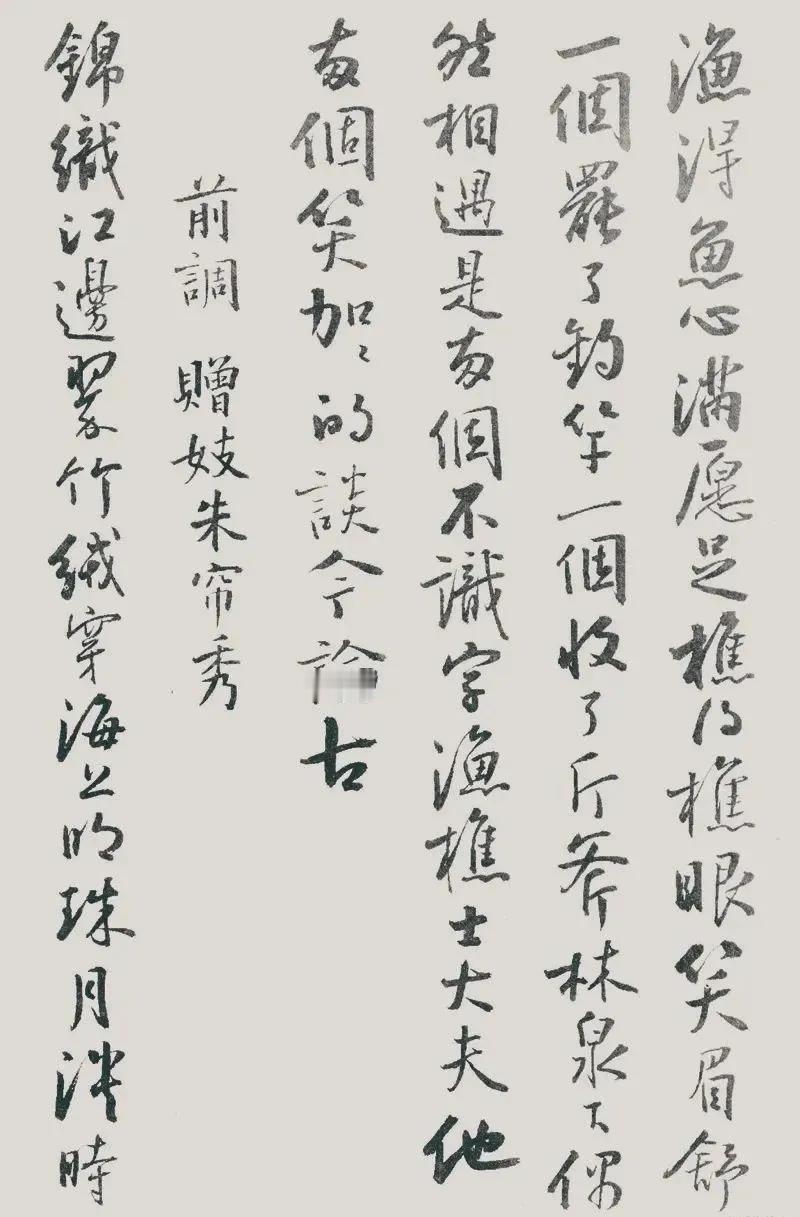 漁得魚心滿愿足樵得樵眼笑眉舒
一個罷了釣竿一個收了斤斧林泉下偶
然相遇是兩個不識字漁樵士大夫他
兩個笑加〻的談今論古
前調 贈妓朱帘秀
錦織江邊翠竹絨穿海上明珠月淡時